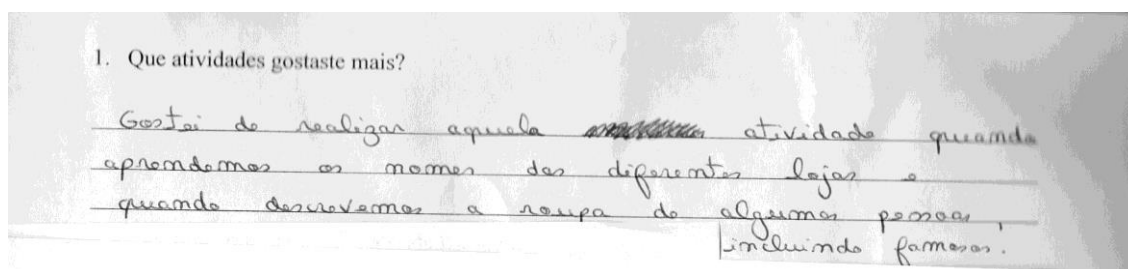 1. Que atividades gostaste mais?
Gostei de realizar aquela atividade quando
aprendemos os nomes das diferentes lojas e
quando descrevemos a roupa de algumas pessoas,
incluindo famosos.